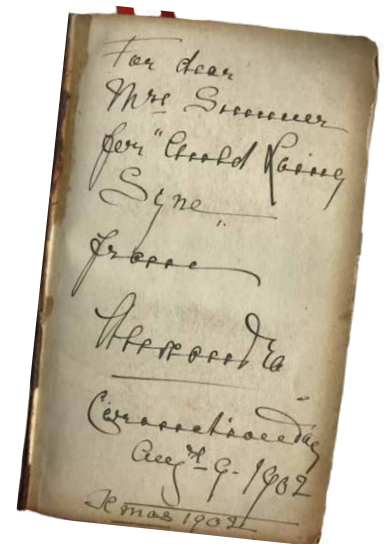 For dear
Mrs Summer
for "Auld Laing
Syne"
from
Alexandra
Coronation Day
Augst 9. 1902
Xmas 1902